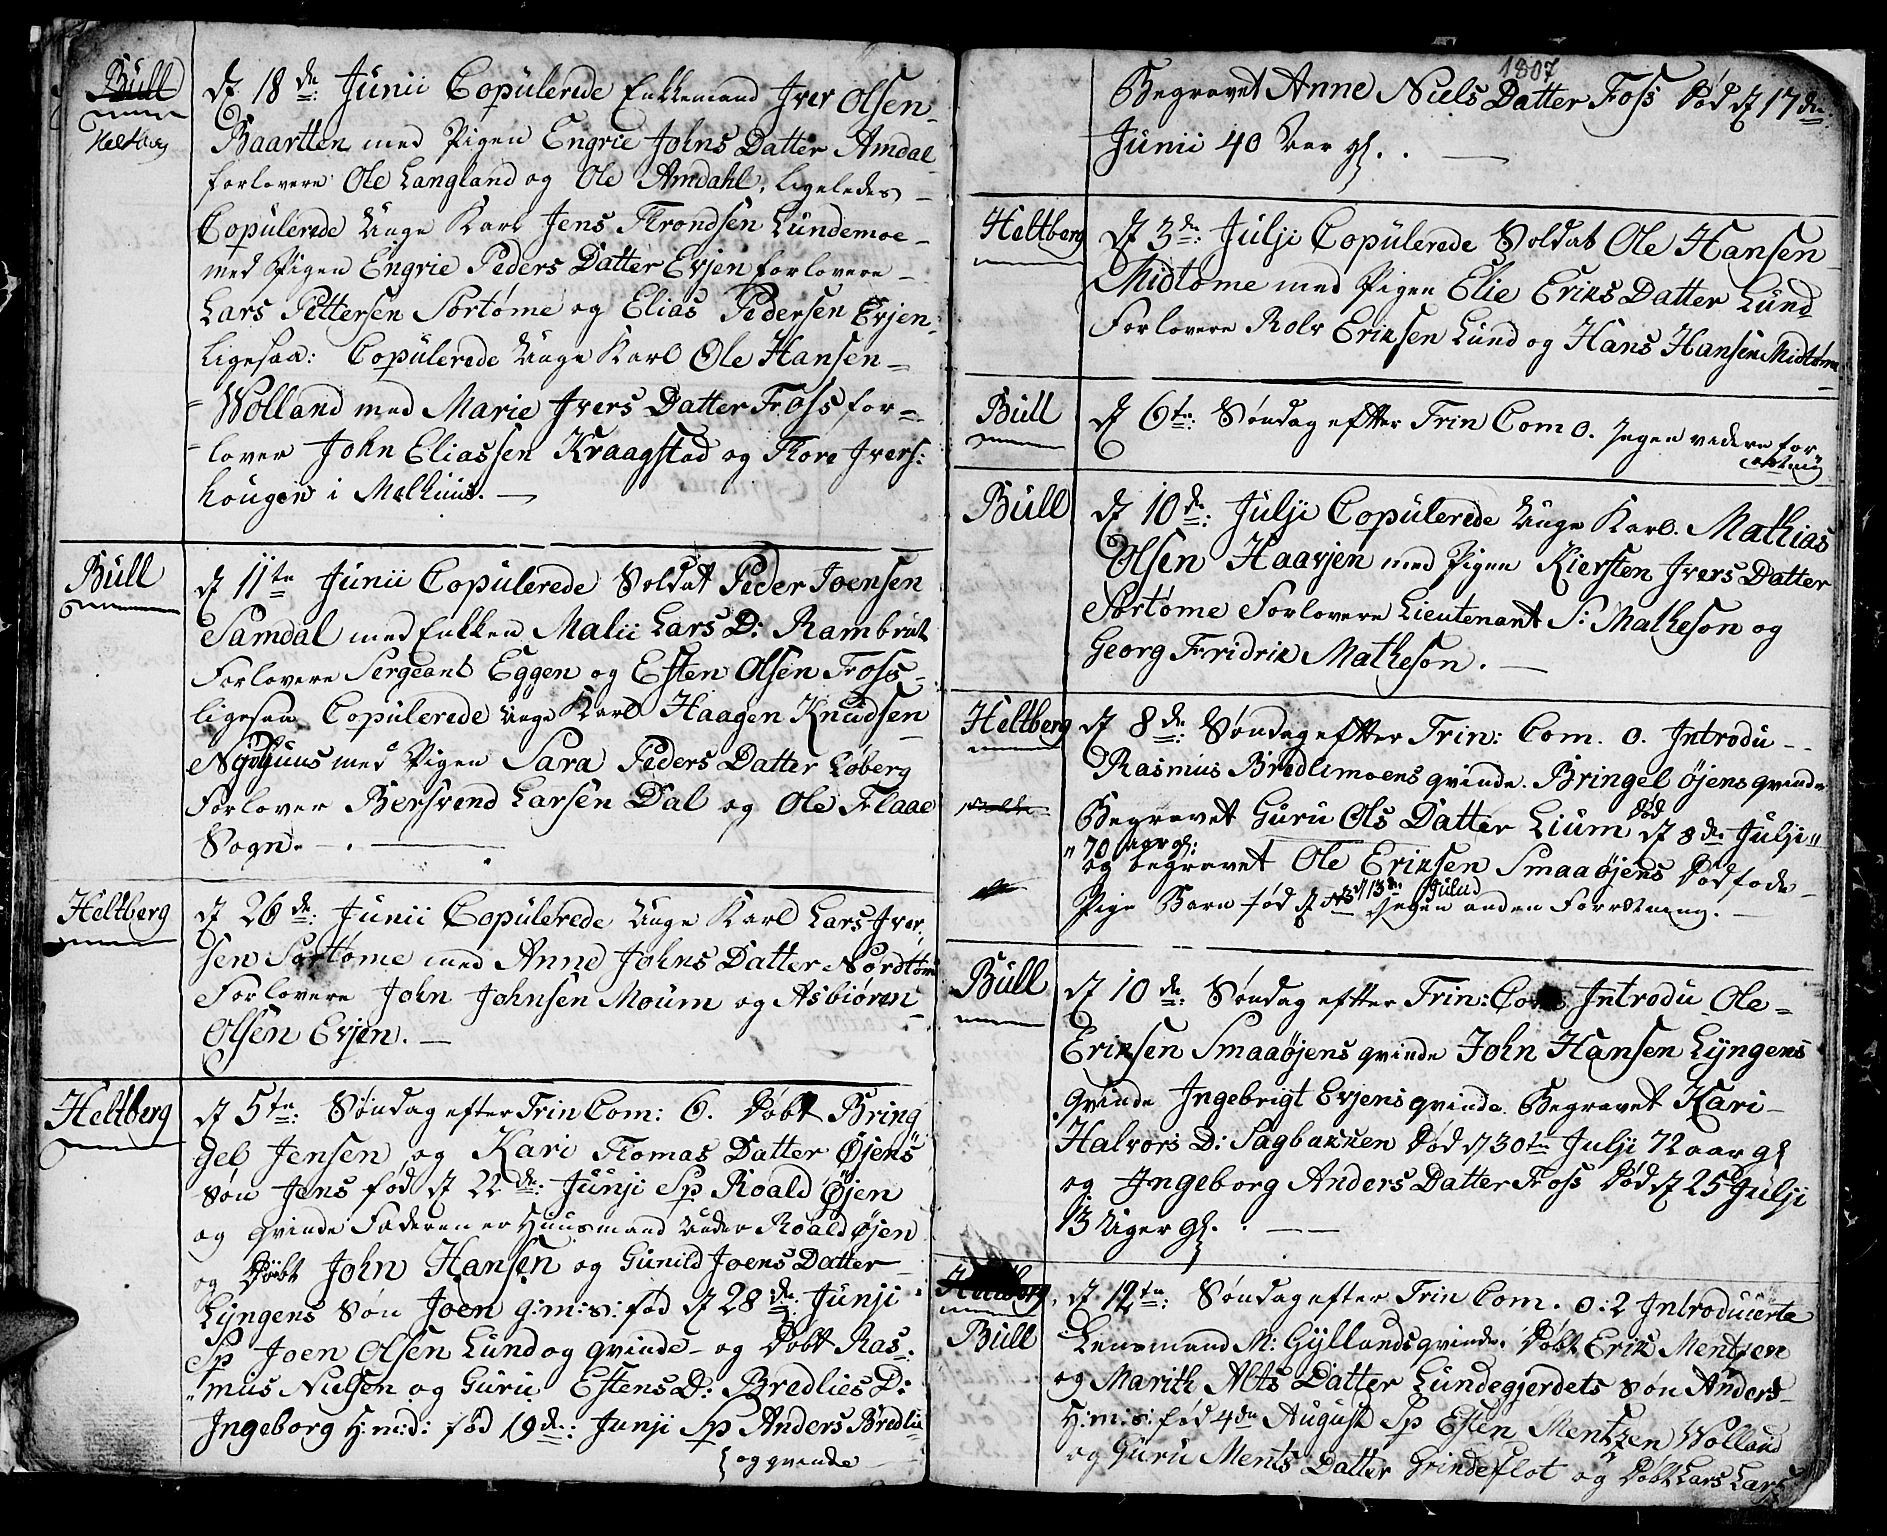 Bull
Heltberg
d 18de: Junii Copulerede Enkemand Iver Olsen
Baartten med Pigen Engrie Johns Datter Amdal
forlovere Ole Langland og Ole Amdahl, ligeledes
Copulerede Unge Karl Jens Trondsen Lundemoe
med Pigen Engrie Peders Datter Evjen forlovere
Lars Pettersen Sortøme og Elias Pedersen Evjen
Ligesaa: Copulerede Unge Karl Ole Hansen
Wolland med Marie Ivers Datter Foss for-
lover John Eliassen Kraagstad og Tore Ivers:
hougen i Melhuus.
Bull
d 11te Junii Copulerede Soldat Peder Joensen
Samdal med Enken Malii Lars D: Rambrut
Forlovere Sergeant Eggen og Esten Olsen Foss
ligesaa Copulerede Unge Karl Haagen Knudsen
Nyhuus med Pigen Sara Peders Datter Løberg
Forlover Bersvend Larsen Dal og Ole Flaae
Sogn.
Heltberg
d 26de: Junii Copulerede Unge Karl Lars Iver
sen Sortøme med Anne Johns Datter Nordtøme
Forlovere John Johnsen Moum og Asbiøren
Olsen Evjen.
Heltberg
d 5te: Søndag efter Trin Com: 6. Døbt Bring
gel Jensen og Kari Tomas Datter Øjens
Søn Jens fød d 22de: Junji Sp Roald Øjen
og qvinde Faderen er Huusmand under Roald Øjen
og Døbt John Hansen og Gunild Joens Datter
Lyngens Søn Joen H:m:s: fød d 28de Junji
Sp Joen Olsen Lund og qvinde og Døbt Ras:
mus Nielsen og Guru Estens D: Bredlies D:
Ingeborg H:m:d: fød 19de: Junji Sp Anders Bredlie
og qvinde
1807
Begravet Anne Niels Datter Foss Død d 17de
Junii 40 Aar gl.
Heltberg
d 3de: Julji Copulerede Soldat Ole Hansen
Midtøme med Pigen Elie Eriks Datter Lund
Forlovere Rolv Eriksen Lund og Hans Hansen Midtøme
Bull
d 6te: Søndag efter Trin Com 0. Ingen videre for
retning
Bull
d 10de: Julji Copulerede Unge Karl Mathias
Olsen Haavjen med Pigen Kiersten Ivers Datter
Sortøme Forlovere Lieutenant S: Matheson og
Georg Fridrik Matheson.
Heltberg
d 8de: Søndag efter Trin: Com. 0. Introdu
Rasmus Bredlimoens qvinde. Bringel Øjens qvinde
Begravet Guru Ols Datter Lium død d 8de Julji
70 aar gl:
og begravet Ole Eriksen Smaaøjens Dødfødte
Pige Barn fød d 13de Julij Ingen anden Forretning.
Bull
d 10de: Søndag efter Trin: Com Introdu Ole
Eriksen Smaaøjens qvinde John Hansen Lyngens
qvinde Ingebrigt Evjens qvinde. Begravet Kari
Halvors D: Sagbakken Død d 30te Julji 72 aar gl
og Ingeborg Anders Datter Foss Død d 25 Julji
13 Uger gl.
Heltberg
Bull
d 12te: Søndag efter Trin Com. 0:2 Introducerte
Lensmand M: Gyllands qvinde. Døbt Erik Mentzen
og Marith Alts Datter Lundegjerdets Søn Anders
H:m:s: fød 4de August Sp Esten Mentzen Wolland
og Guru Ments Datter Grindeflot og Døbt Lars Lars